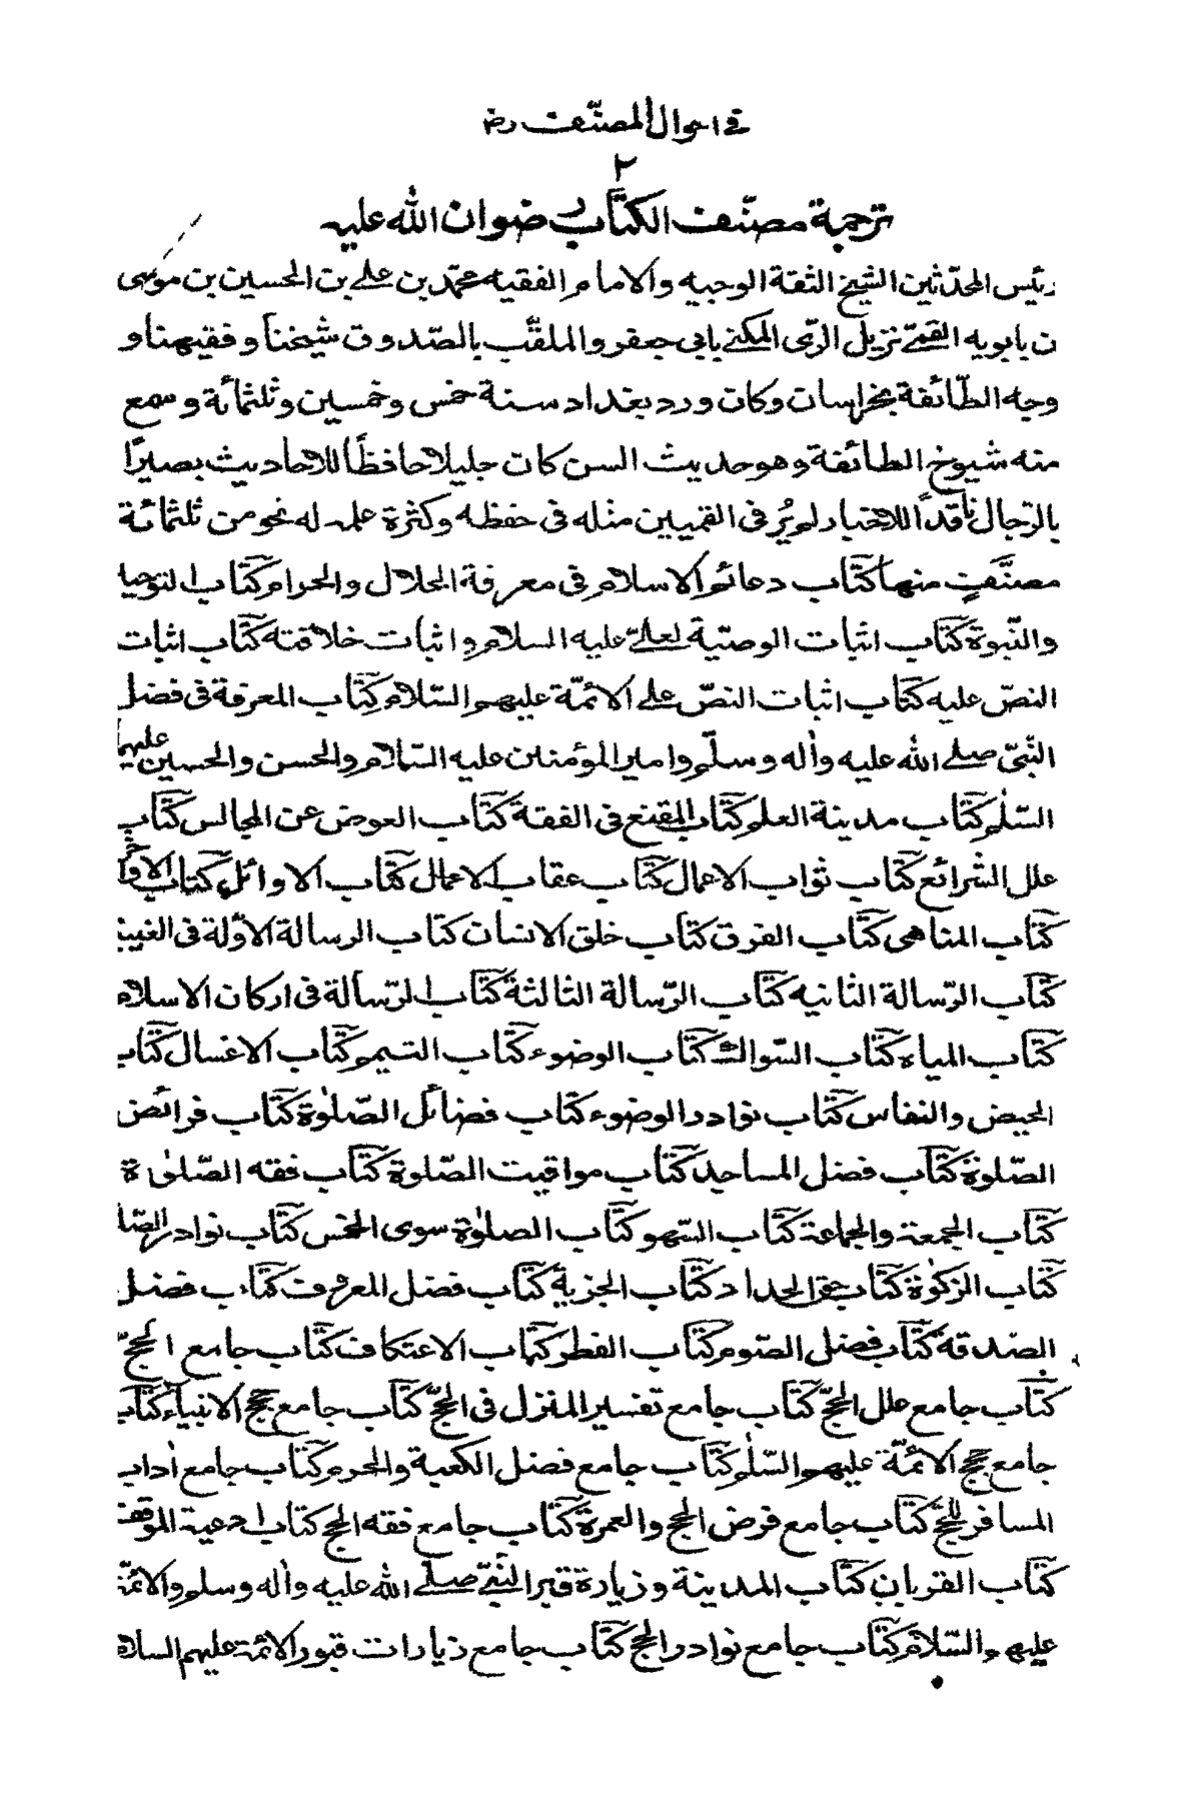 فى احوال المصنّف رض
٢
ترجمة مصنّف الكتاب رضوان الله عليه
رئيس المحدّثين الشيخ الثقة الوجيه والامام الفقيه محمّد بن على بن الحسين بن موسى
بن بابويه القمّى نزيل الرّى المكنى بابي جعفر والملقّب بالصّدوق شيخنا و فقيهنا و
وجه الطّائفة بخراسان وكان ورد بغداد سنة خمس وخمسين وثلثمائة وسمع
منه شيوخ الطائفة وهو حديث السن كان جليلا حافظًا للاحاديث بصيرًا
بالرّجال ناقدًا للاخبار لم يُر فى القميين مثله فى حفظه وكثرة علمه له نحو من ثلثمائة
مصنَّفٍ منها كتاب دعائم الاسلام فى معرفة الحلال والحرام كتاب التوحيد
والنّبوة كتاب اثبات الوصيّة لعلىّ عليه السلام و اثبات خلافته كتاب اثبات
النصّ عليه كتاب اثبات النصّ على الائمّة عليهم السّلام كتاب المعرفة فى فضل
النّبىّ صلى الله عليه واٰله وسلّم وامير المؤمنين عليه السّلام والحسن والحسين عليهما
السّلم كتاب مدينة العلم كتاب المقنع فى الفقه كتاب العوض عن المجالس كتاب
علل الشرائع كتاب ثواب الاعمال كتاب عقاب الاعمال كتاب الاوائل كتاب الاواخر
كتاب المناهى كتاب الفرق كتاب خلق الانسان كتاب الرسالة الاولة فى الغيبة
كتاب الرّسالة الثانيه كتاب الرّسالة الثالثة كتاب الرّسالة فى اركان الاسلام
كتاب المياه كتاب السّواك كتاب الوضوء كتاب التيمم كتاب الاغسال كتاب
الحيض والنفاس كتاب نوادر الوضوء كتاب فضائل الصّلوٰة كتاب فرائض
الصّلوة كتاب فضل المساجد كتاب مواقيت الصّلوة كتاب فقه الصّلوٰة
كتاب الجمعة والجماعة كتاب السّهو كتاب الصلوٰة سوى الخمس كتاب نوادر الصّلا
كتاب الزكوٰة كتاب حق الجداد كتاب الجزية كتاب فضل المعروف كتاب فضل
الصّدقة كتاب فضل الصّوم كتاب الفطر كتاب الاعتكاف كتاب جامع الحجّ
كتاب جامع علل الحجّ كتاب جامع تفسير المنزل فى الحجّ كتاب جامع حجج الانبياء كتاب
جامع حجج الائمّة عليهم السّلٰم كتاب جامع فضل الكعبة والحرم كتاب جامع اٰداب
المسافر للحجّ كتاب جامع فرض الحج والعمرة كتاب جامع فقه الحج كتاب ادعية الموقف
كتاب القربان كتاب المدينة وزيارة قبر النّبىّ صلى الله عليه واٰله وسلم والائمّة
عليهم والسّلام كتاب جامع نوادر الحج كتاب جامع زيارات قبور الائمة عليهم السلام